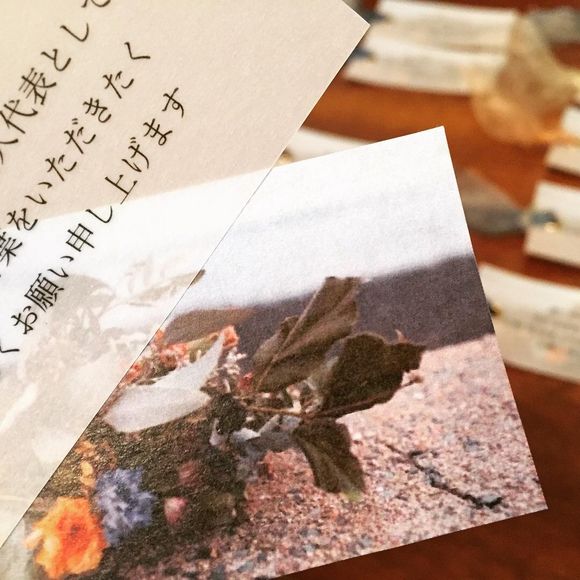 人代表として
葉をいただきたく
くお願い申し上げます